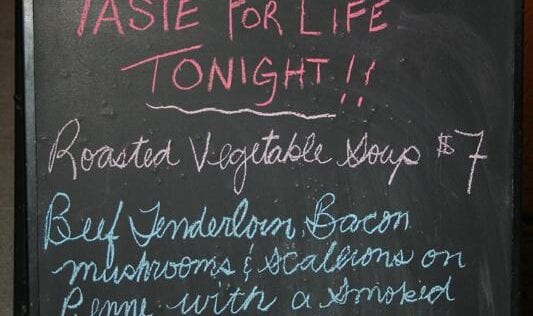 TASTE FOR LIFE
TONIGHT!!
Roasted Vegetable Soup $7
Beef Tenderloin, Bacon
mushrooms & scalerons on
Penne with a smoked